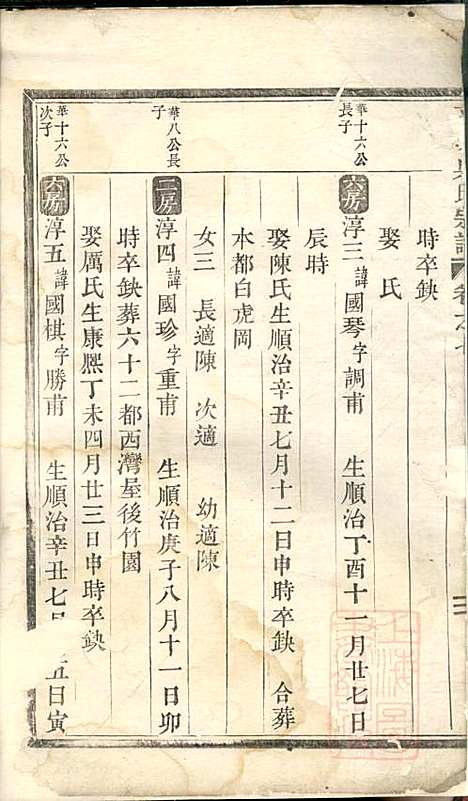 氏宗譜 卷之七
時卒缺
娶 氏
華十六公長子
六房 淳三諱國琴字調甫 生順治丁酉十一月廿七日
辰時
娶陳氏生順治辛丑七月十二日申時卒缺 合葬
木都白虎岡
女三 長適陳 次適 幼適陳
華八公長子
二房 淳四諱國珍字重甫 生順治庚子八月十一日卯
時卒缺葬六十二都西灣屋後竹園
娶厲氏生康熙丁未四月廿三日申時卒缺
華十六公次子
六房 淳五諱國棋字勝甫 生順治辛丑七月 五日寅